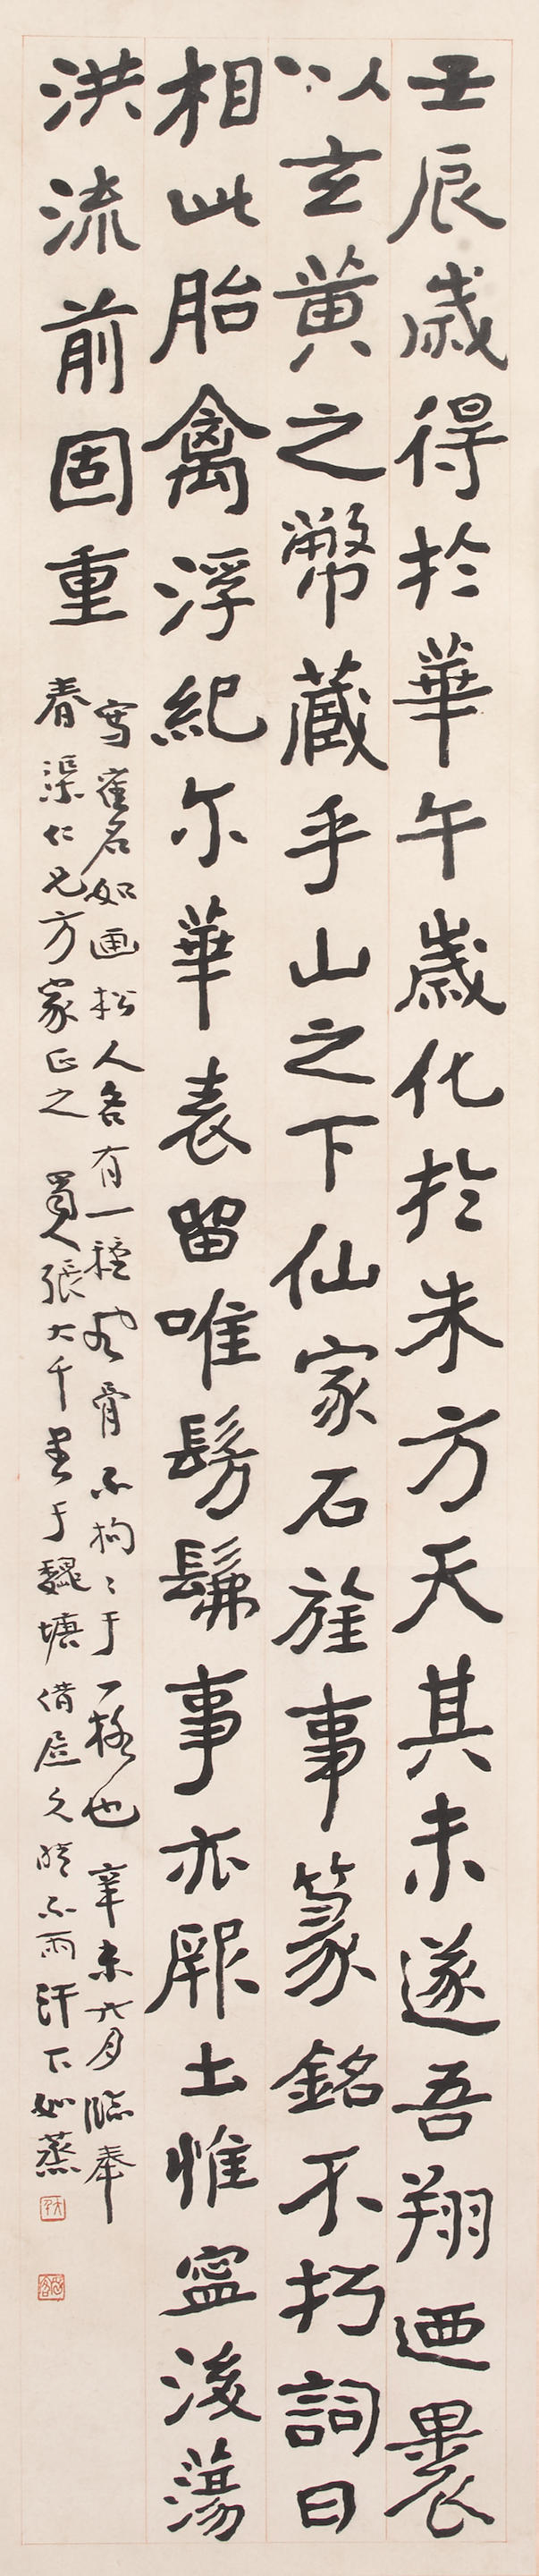 壬辰歲得於華午歲化於朱方天其未遂吾翔迺裹
以玄黄之幣藏乎山之下仙家石旌事篆銘不朽詞曰
相此胎禽浮紀尔華表留唯髣髴事亦厥土惟寍浚蕩
洪流前固重
寫崔名如画松人各有一種風骨不拘〻于一格也 辛未六月臨奉
春渠仁兄方家正之 張大千爰于魏塘借居久晴不雨汗下如蒸